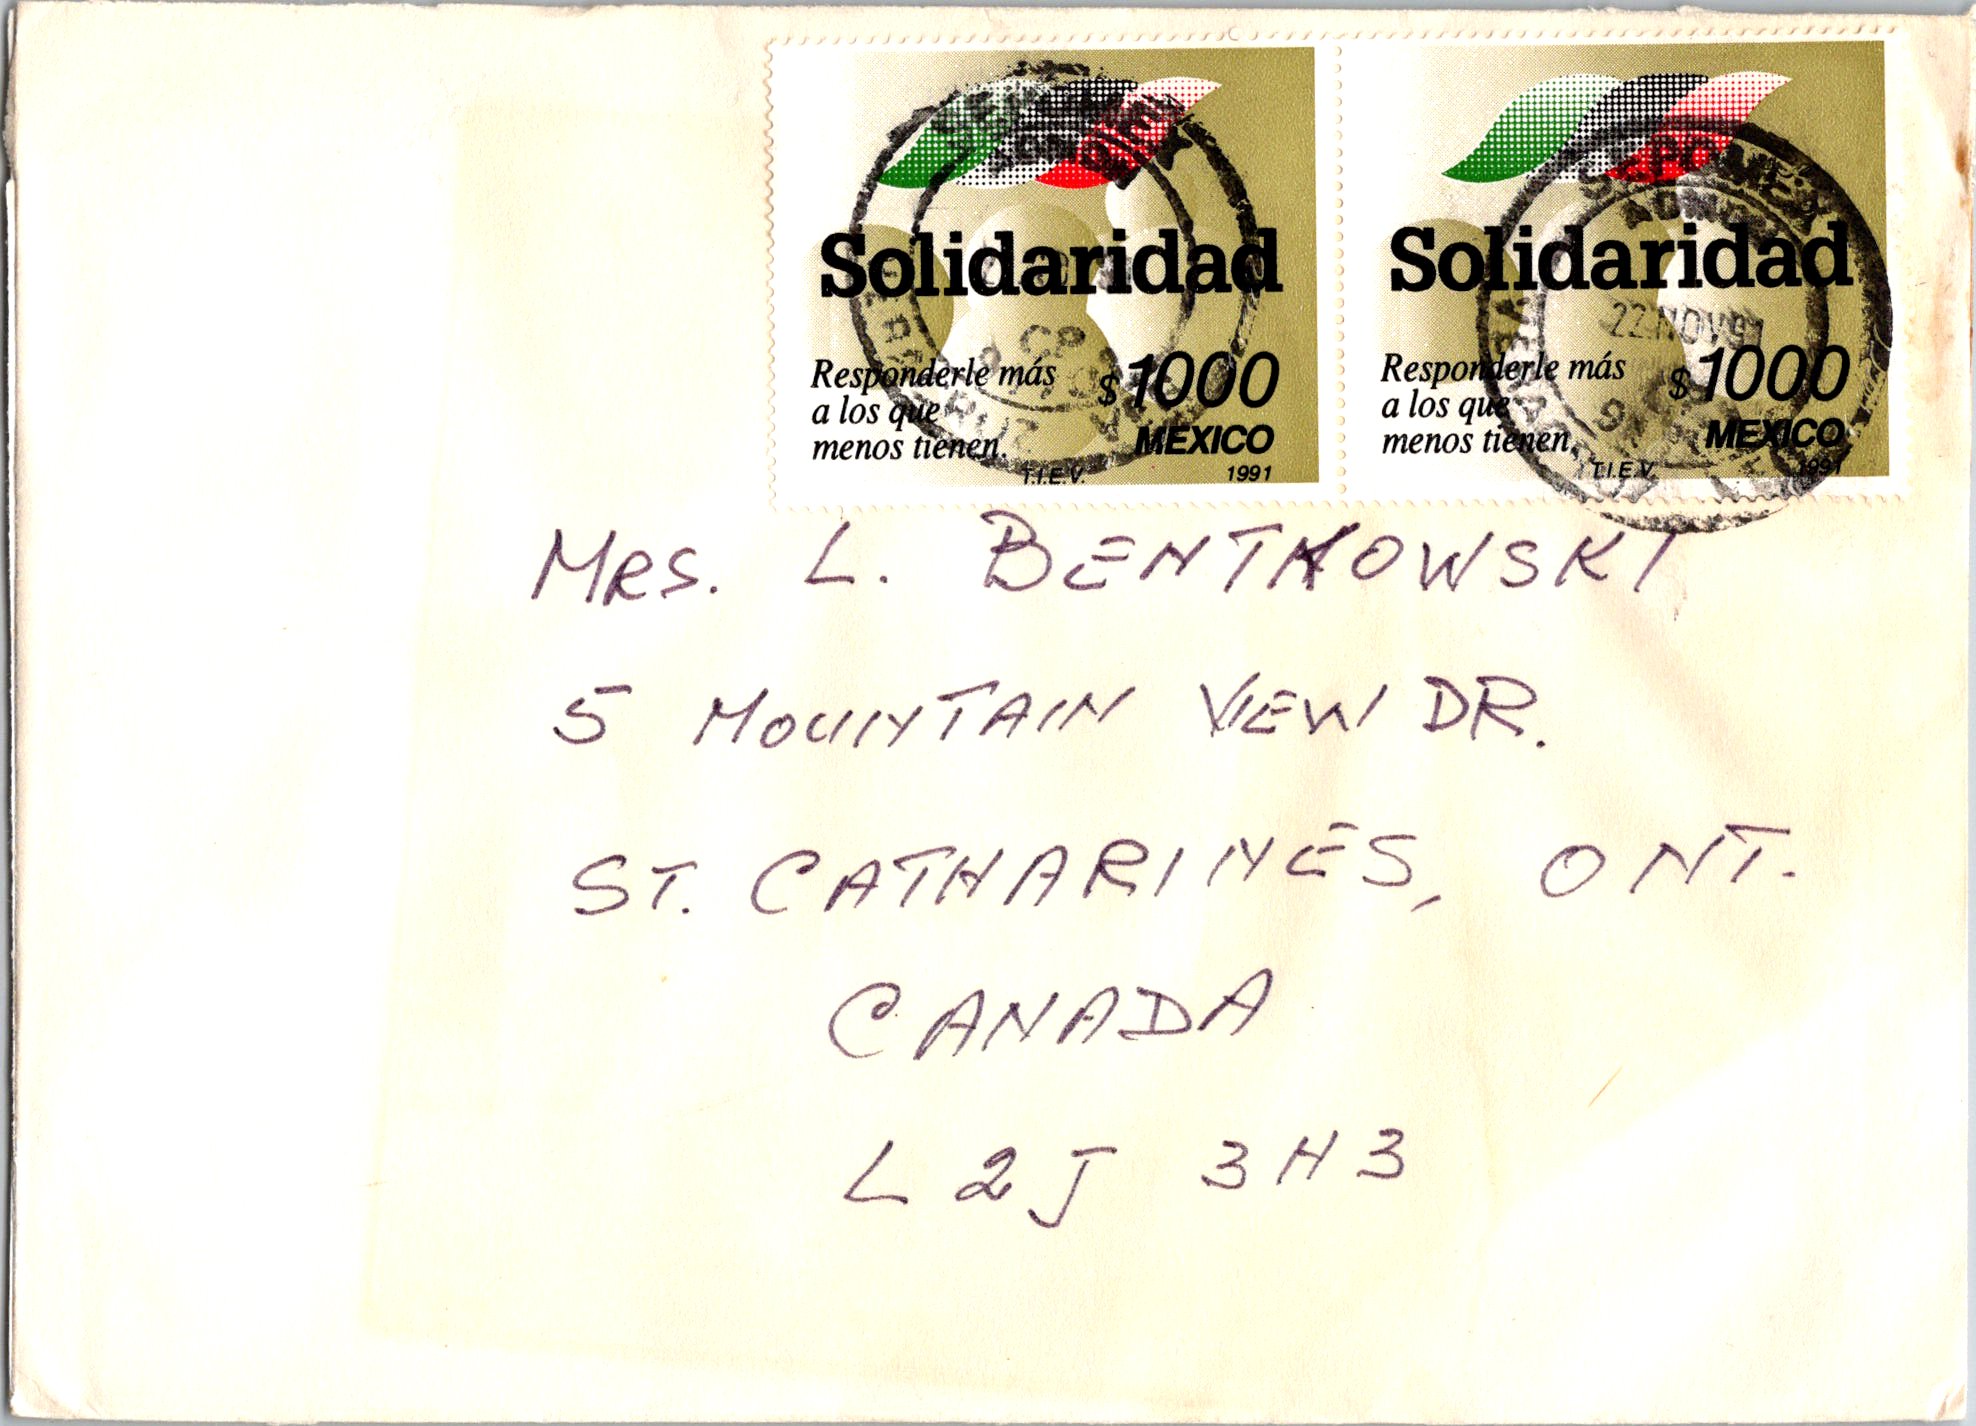 Solidaridad
Responderle más
a los que
menos tienen.
$1000
MEXICO
T.I.E.V.
1991
VERACRUZ
Solidaridad
Responderle más
a los que
menos tienen.
$1000
MEXICO
T.I.E.V.
1991
SEPOMEX
22 NOV 91
MRS. L. BENTKOWSKI
5 MOUNTAIN VIEW DR.
ST. CATHARINES, ONT.
CANADA
L2J 3H3